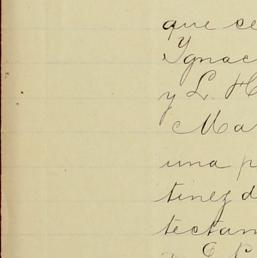 que se
Ygnac
y L. H
Ma
una p
tinez d
tectam